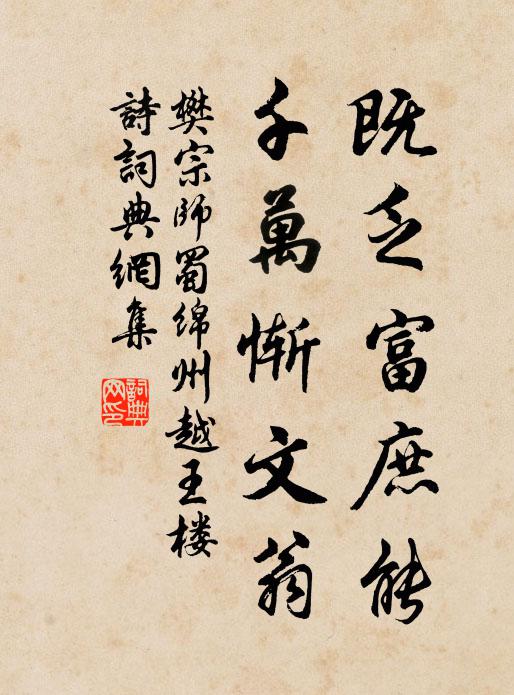 既乏富庶能
千萬慚文翁
樊宗师蜀绵州越王楼
詩詞典網集
詞典网印